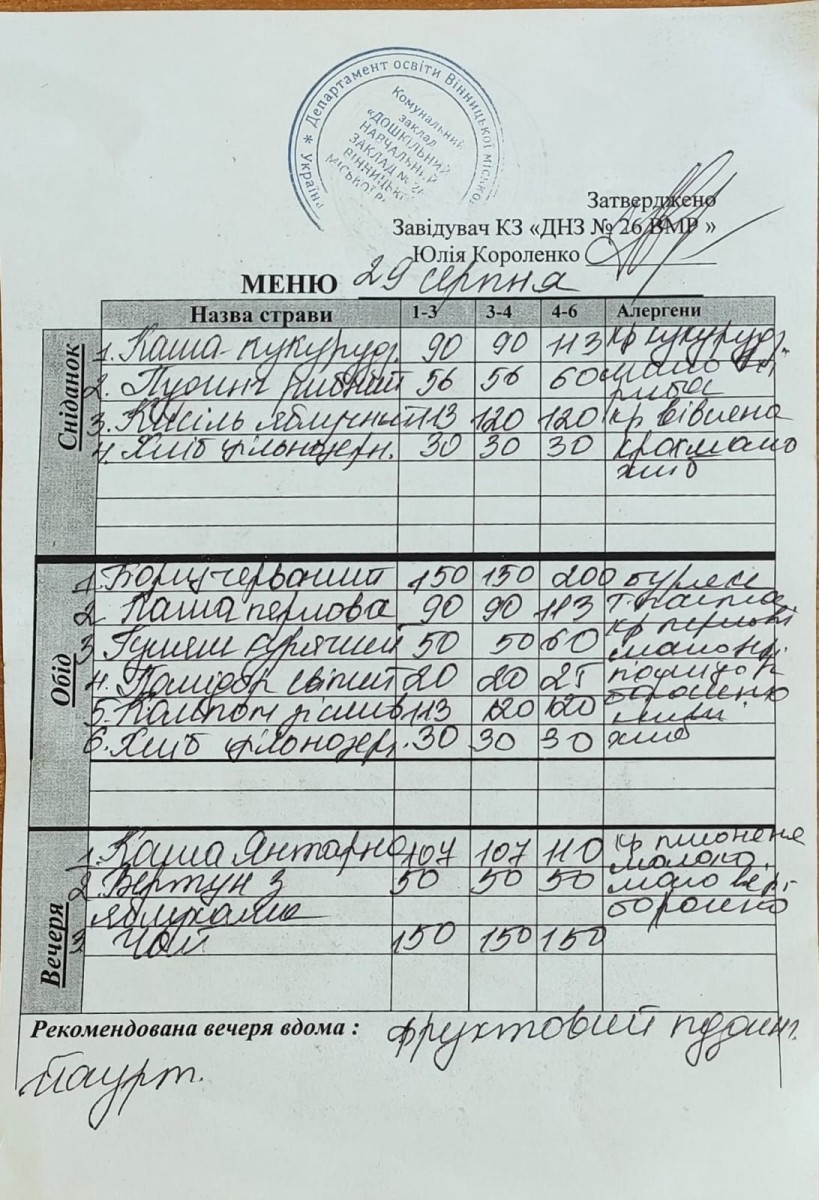 Україна * Департамент освіти Вінницької міської
Комунальний
заклад
«ДОШКІЛЬНИЙ
НАВЧАЛЬНИЙ
ЗАКЛАД № 26
ВІННИЦЬКОЇ
МІСЬКОЇ Р
Затверджено
Завідувач КЗ «ДНЗ № 26 ВМР »
Юлія Короленко
МЕНЮ 29 серпня
Назва страви 1-3 3-4 4-6 Алергени
Сніданок
1. Каша кукурудз. 90 90 113 кр кукурудз.
2. Пудинг рибний 56 56 60 масло
риба
3. Кисіль яблучний 113 120 120 кр вівсяна
4. Хліб цільнозерн. 30 30 30 крохмало
хліб
Обід
1. Борщ червоний 150 150 200 буряк
2 Каша перлова 90 90 113 т.паста
3 Гуляш курячий 50 50 60 кр перлові
4. Помідор свіжий 20 20 25 помидор
5. Компот 113 120 120 борошно
6. Хліб цільнозер. 30 30 30 хліб
Вечеря
1. Каша Янтарна 107 107 110 кр пшоняна
молоко
2. Вертун з 50 50 50 масло вер
яблуками борошно
3. Чай 150 150 150
Рекомендована вечеря вдома : фруктовий пудинг.
йогурт.